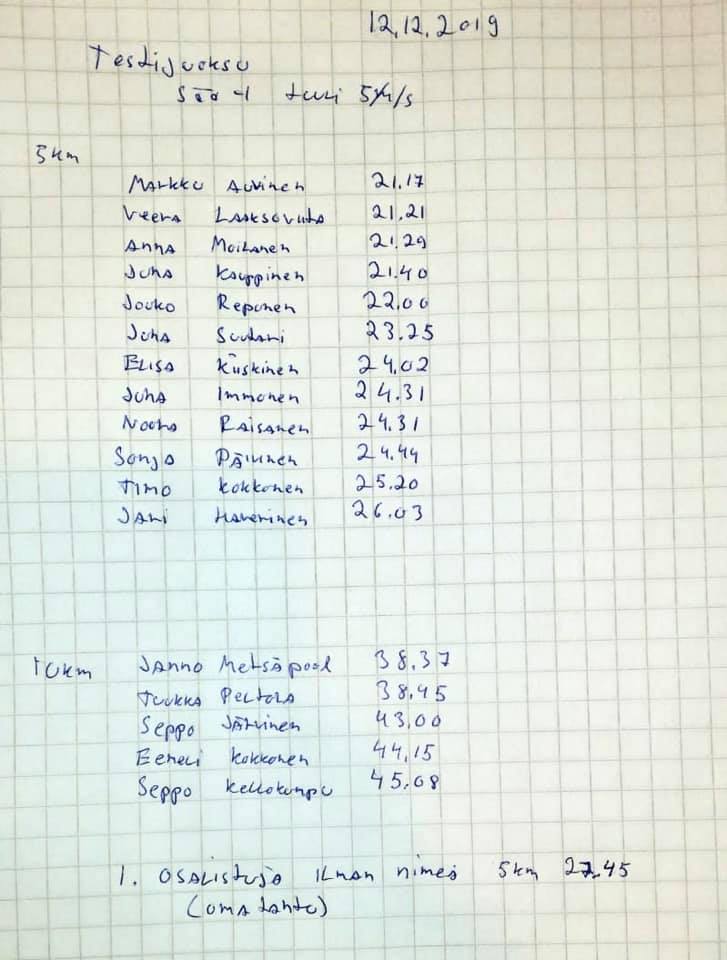 12.12.2019
Testijuoksu
Sää -1 tuuli 5m/s
5km
Markku Auvinen 21.17
Veera Laaksovirta 21.21
Anna Moilanen 21.29
Juha Kauppinen 21.40
Jouko Reponen 22.00
Juha Soutani 23.25
Elisa Kiiskinen 24.02
Juha Immonen 24.31
Noora Räisänen 24.31
Sonja Päivinen 24.44
Timo Kokkonen 25.20
Jani Haverinen 26.03
10km Janno Metsäpool 38.37
Tuukka Peltola 38.45
Seppo Järvinen 43.00
Eemeli Kokkonen 44.15
Seppo Kellokumpu 45.08
1. osallistuja ilman nimeä 5km 27.45
(oma tahto)